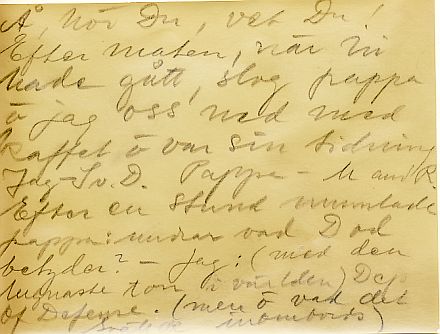 Å, hör Du, vet Du!
Efter maten, när Ni
hade gått, slog pappa
o jag oss ned med
kaffet o var sin tidning
Jag - Sv. D. Pappa - M and R.
Efter en stund mumlade
pappa: undrar vad D od
betyder? - jag: (med den
lugnaste ton i världen) Dep
Of Defense. (men o vad det
inombords)